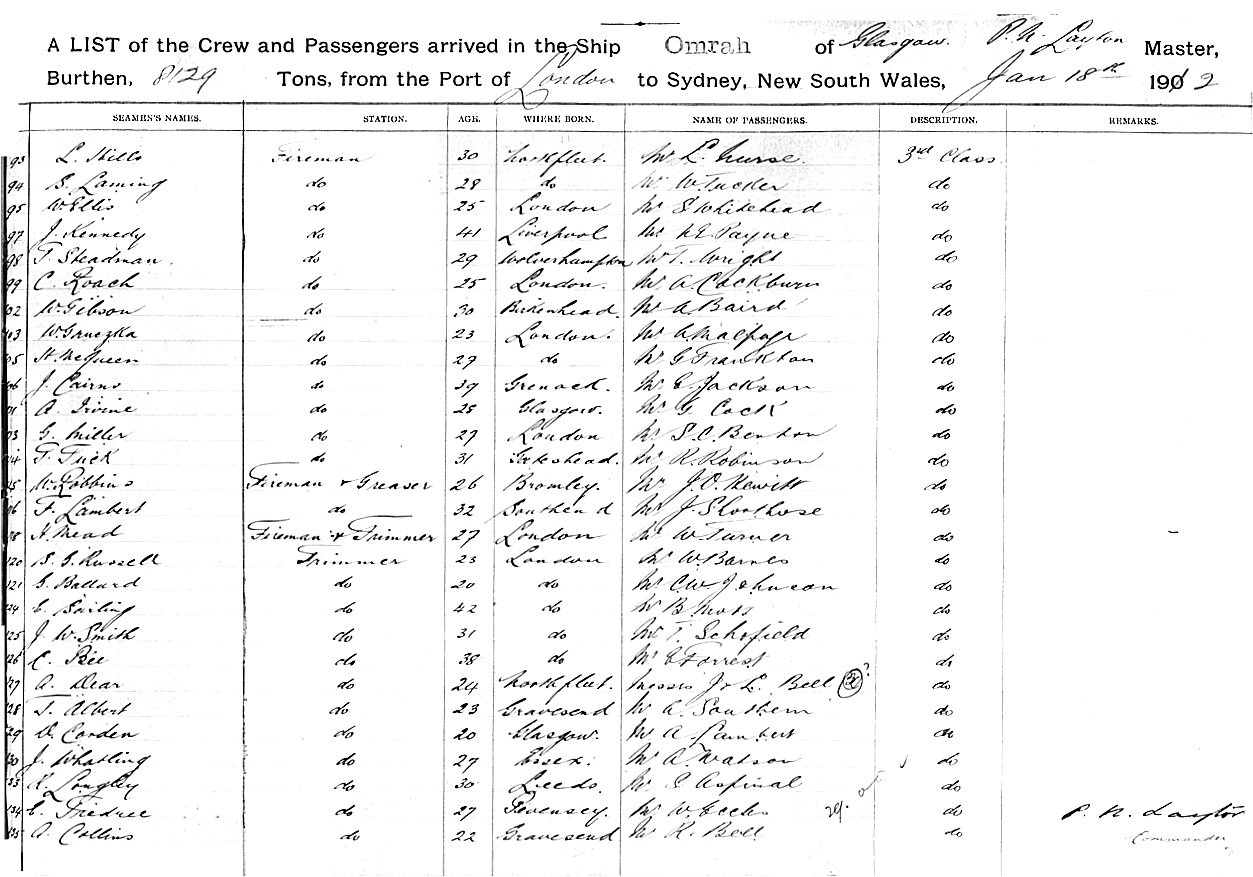 A LIST of the Crew and Passengers arrived in the Ship Omrah of Glasgow. P. N. Layton Master,
Burthen, 8129 Tons, from the Port of London to Sydney, New South Wales, Jan 18th 1902
SEAMEN'S NAMES. STATION. AGE. WHERE BORN. NAME OF PASSENGERS. DESCRIPTION. REMARKS.
93 L. Hills Fireman 30 Northfleet. Mr L. Nurse 3rd Class
94 S. Laming do 28 do Mr W. Tucker do
95 W Ellis do 25 London Mr S Whitehead do
97 J. Kennedy do 41 Liverpool Mr Payne do
98 T. Steadman. do 29 Wolverhampton Mr T. Wright do
99 C. Roach do 25 London. Mr A Cockburn do
02 W. Gibson do 30 Birkenhead. Mr A Baird do
03 W. do 23 London. Mr A. Malpage do
05 H. McQueen do 29 do Mr G Frankton do
06 J. Cairns do 39 Grenock. Mr E. Jackson do
A. Irvine do 28 Glasgow. Mr G. Cock do
13 G. Miller do 27 London Mr S. C. Benton do
14 T. Tuck do 31 Gateshead. Mr R. Robinson do
15 W. Robbins Fireman & Greaser 26 Bromley. Mr J. O. Hewitt do
16 F. Lambert do 32 Southend Mr J. Shorthose do
18 H. Mead Fireman & Trimmer 27 London Mr W Turner do
120 S. G. Russell Trimmer 23 London Mr W. Barnes do
121 G. Ballard do 20 do Mr C. W. Johnson do
124 E. do 42 do Mr B. Moss do
125 J. W. Smith do 31 do Mr T. Schofield do
126 C. Bee do 38 do Mr E Forrest do
127 A. Dear do 24 Northfleet. Messrs J & L. Bell (2) ? do
128 T. Albert do 23 Gravesend Mr A. Southern do
129 D. Corden do 20 Glasgow. Mr A Lambert do
130 J. Whatling do 27 Essex. Mr A. Watson do
133 K. Longley do 30 Leeds. Mr S Aspinal do
134 E. Fredree do 27 Pevensey. Mr W. Eccles 29. do P. N. Layton
135 A. Collins do 22 Gravesend Mr R. Bell do Commander